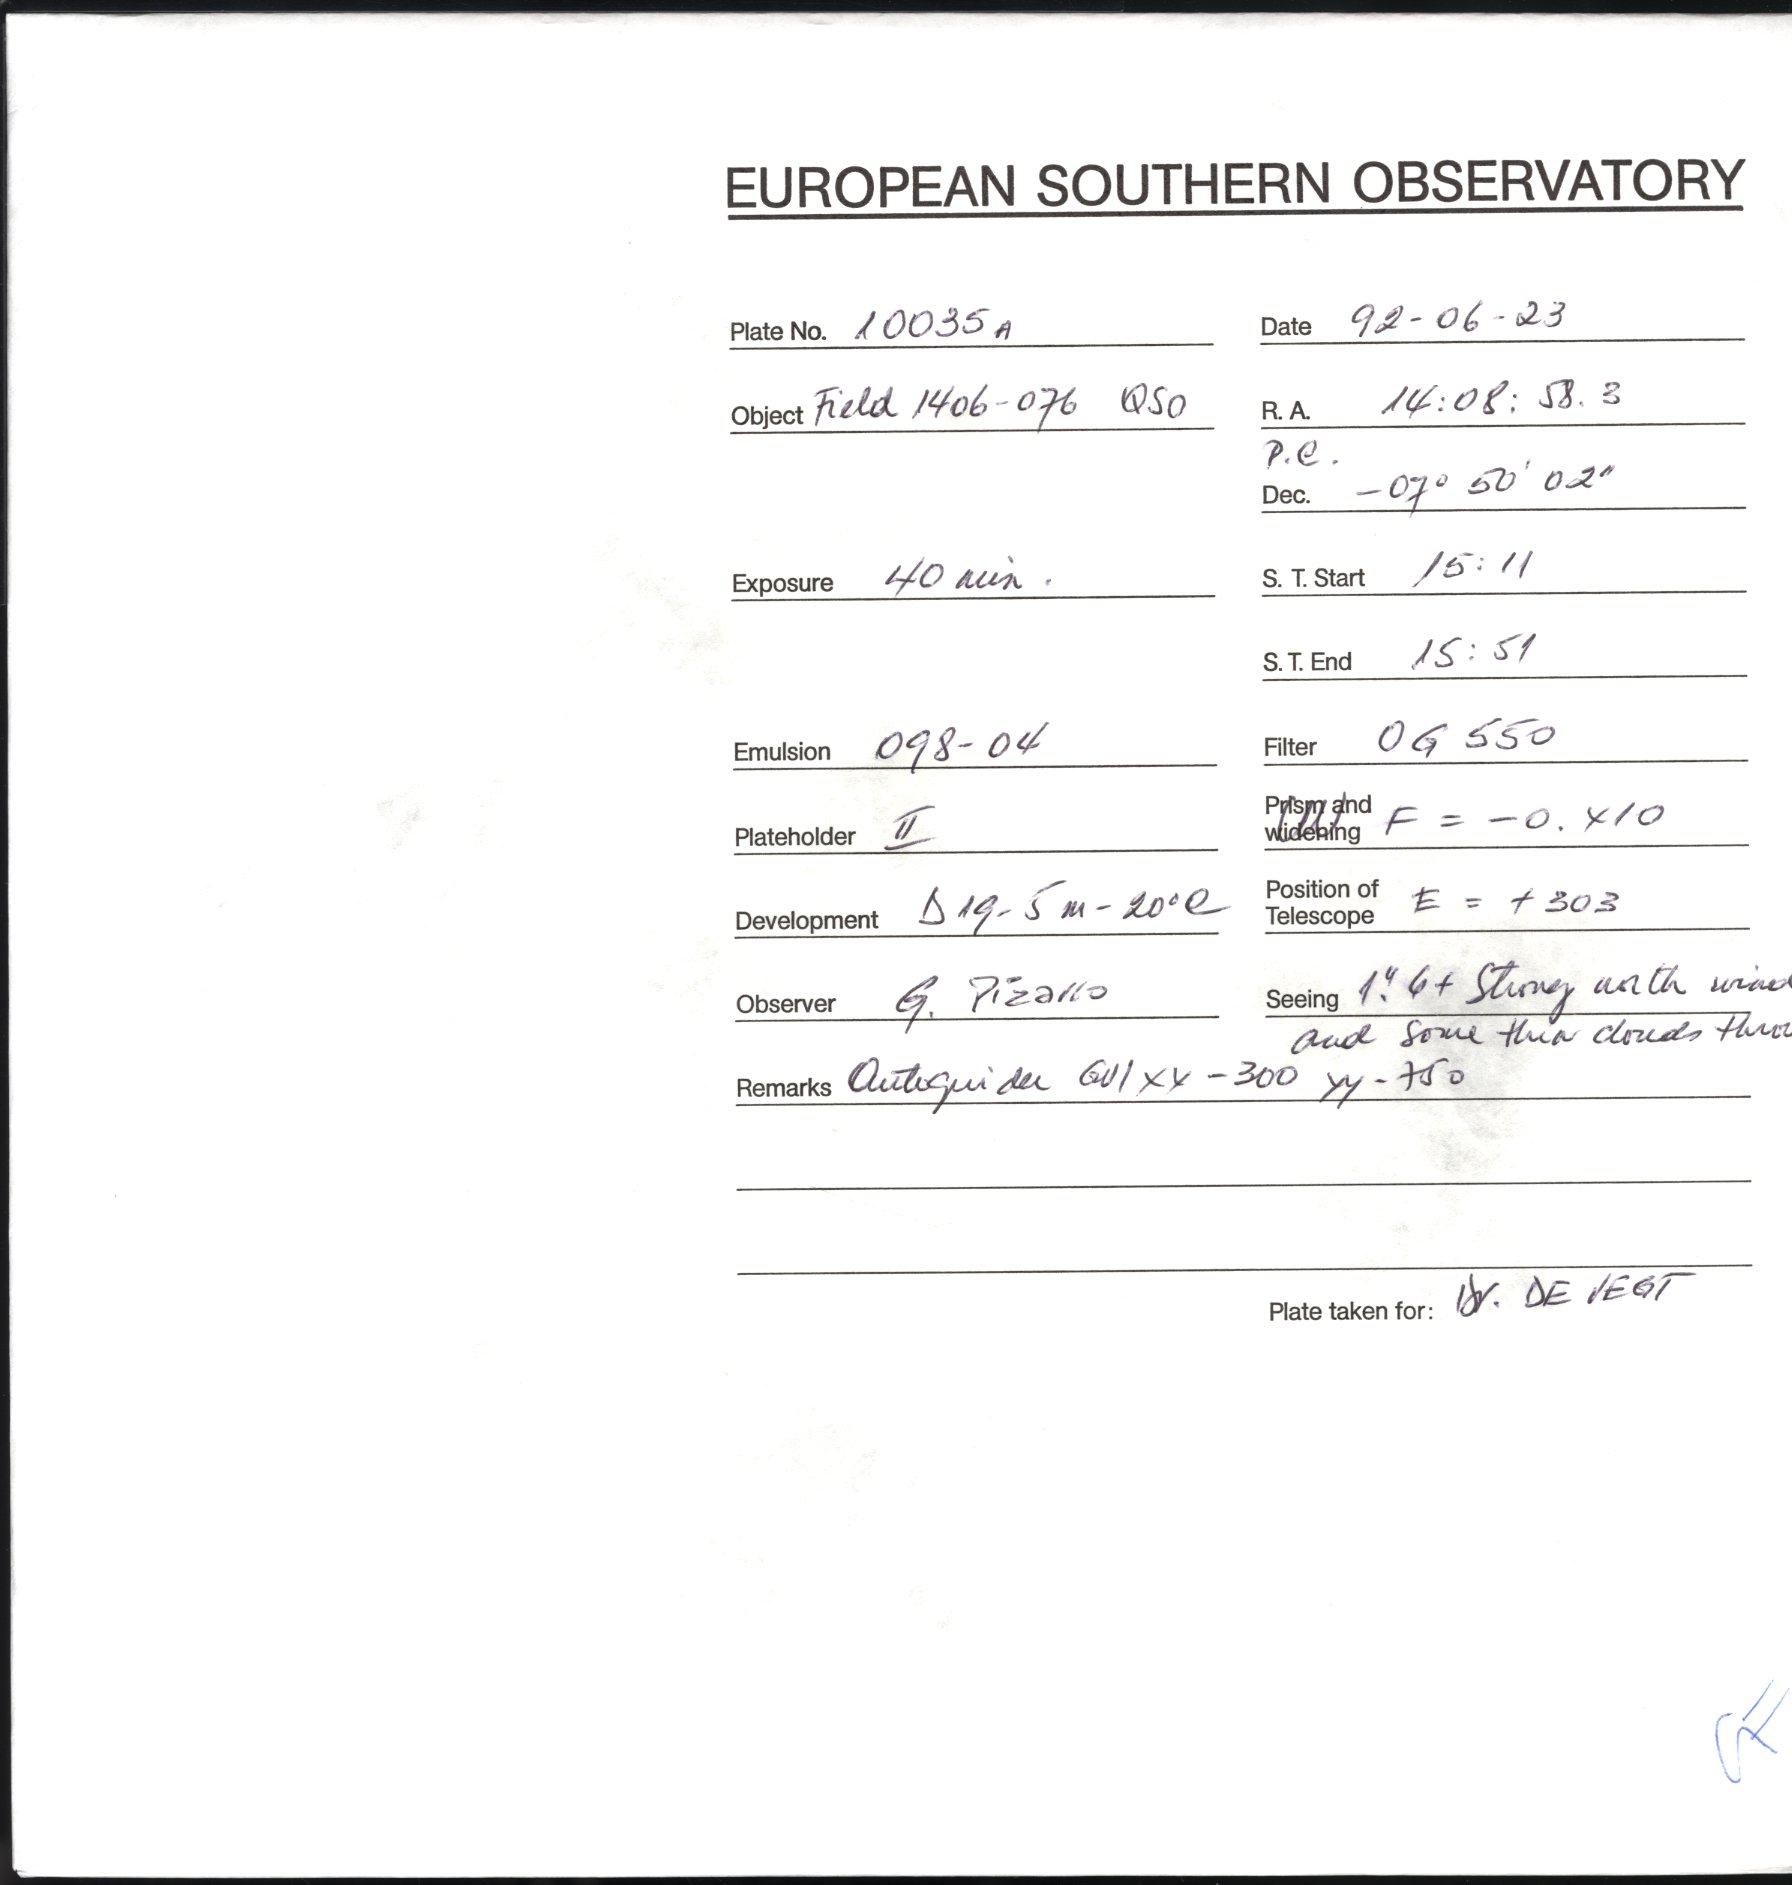 EUROPEAN SOUTHERN OBSERVATORY
Plate No. 10035 A
Date 92-06-23
Object Field 1406-076 QSO
R. A. 14:08:58.3
P.C.
Dec. -07° 50' 02"
Exposure 40 min.
S. T. Start 15:11
S. T. End 15:51
Emulsion 098-04
Filter OG 550
Plateholder II
Prism and widening F = -0. x10
Development D19-5m-20°C
Position of Telescope E = +303
Observer G. Pizarro
Seeing 1".6+ Strong north wind
and some thin clouds
Remarks Autoguider xx -300 yy -
Plate taken for: Dr. DE VEGT
OK